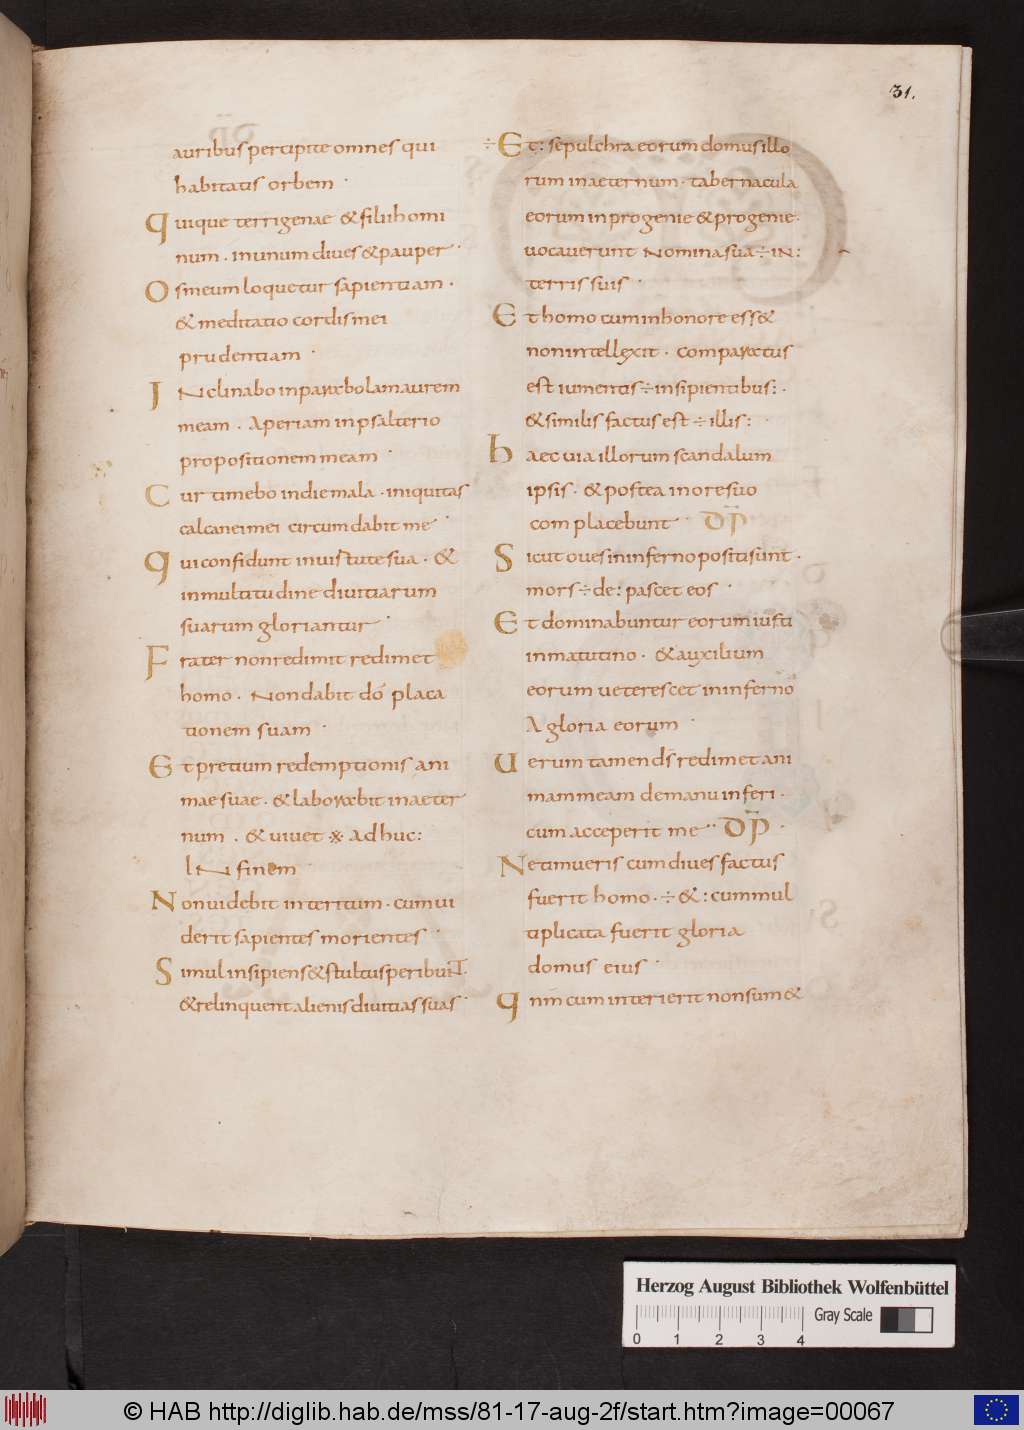 31.
auribus percipite omnes qui
habitatis orbem ·
Quique terrigenae & filii homi
num · in unum dives & pauper ·
Os meum loquetur sapientiam ·
& meditatio cordis mei
prudentiam ·
INclinabo in parabolam aurem
meam · Aperiam in psalterio
propositionem meam ·
Cur timebo in die mala · iniquitas
calcanei mei circumdabit me ·
Qui confidunt in virtute sua · &
in multitudine divitiarum
suarum gloriantur ·
Frater non redimit redimet
homo · Non dabit dō placa
tionem suam ·
Et pretium redemptionis ani
mae suae · & laborabit in aeter
num · & vivet ※ adhuc:
IN finem
Non videbit interitum · cum vi
derit sapientes morientes ·
Simul insipiens & stultus peribunT·
& relinquent alienis divitias suas ·
÷Et: sepulchra eorum domus illo
rum in aeternum · tabernacula
eorum in progenie & progenie ·
vocaverunt Nomina sua ÷ iN:
terris suis ·
Et homo cum in honore ess&
non intellexit · comparatus
est iumentis ÷ insipientibus: ·
& similis factus est ÷ illis: ·
haec via illorum scandalum
ipsis · & postea in ore suo
complacebunt · DP̄
Sicut oves in inferno positi sunt ·
mors ÷ de: pascet eos ·
Et dominabuntur eorum iusti
in matutino · & auxilium
eorum veterescet in inferno
A gloria eorum ·
Verum tamen dš redimet ani
mam meam de manu inferi ·
cum acceperit me ·· DP̄ ·
Ne timueris cum dives factus
fuerit homo · ÷ &: cum mul
tiplicata fuerit gloria
domus eius ·
Qnm cum interierit non sum&
Herzog August Bibliothek Wolfenbüttel
Gray Scale
0 1 2 3 4
© HAB http://diglib.hab.de/mss/81-17-aug-2f/start.htm?image=00067